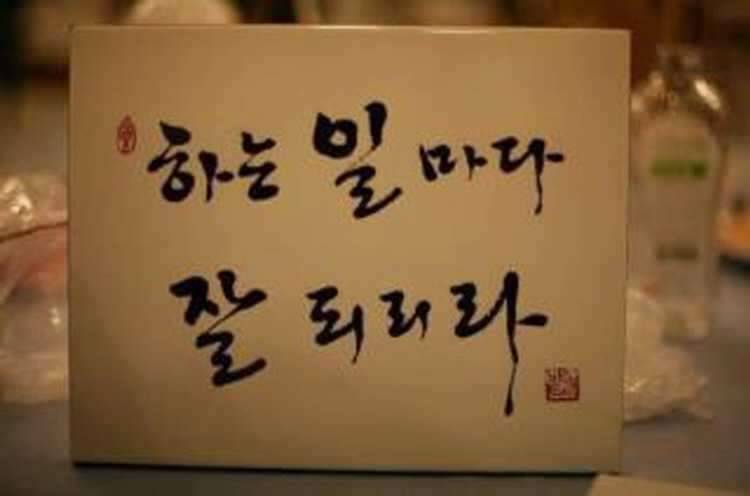 하는 일 마다
잘 되리라